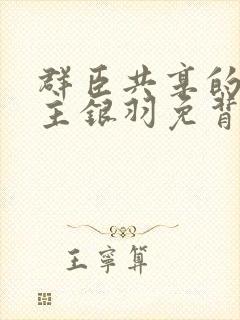 群臣共享的
主银羽免背
王寧算